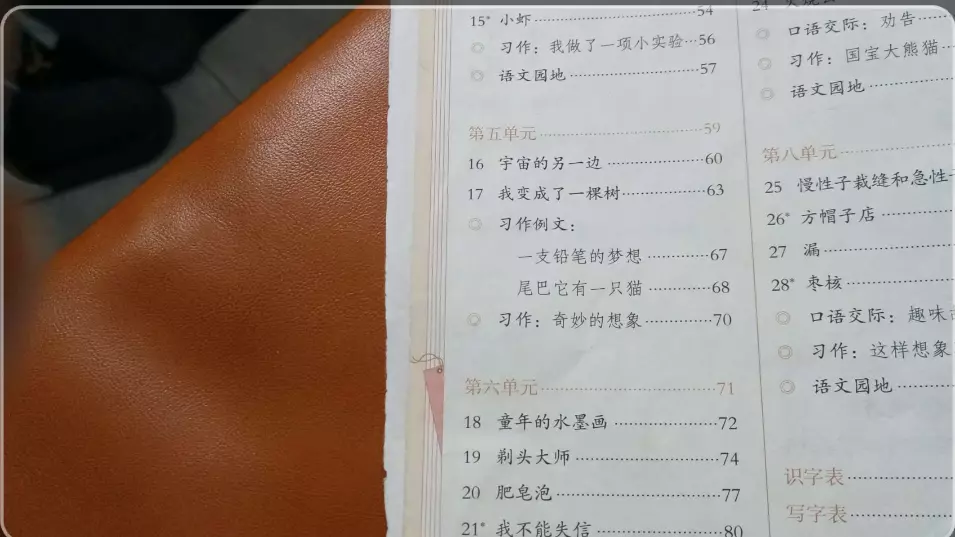 15* 小虾 54
◎ 习作：我做了一项小实验 56
◎ 语文园地 57
第五单元 59
16 宇宙的另一边 60
17 我变成了一棵树 63
◎ 习作例文：
一支铅笔的梦想 67
尾巴它有一只猫 68
◎ 习作：奇妙的想象 70
第六单元 71
18 童年的水墨画 72
19 剃头大师 74
20 肥皂泡 77
21* 我不能失信 80
24
◎ 口语交际：劝告
◎ 习作：国宝大熊猫
◎ 语文园地
第八单元
25 慢性子裁缝和急性
26* 方帽子店
27 漏
28* 枣核
◎ 口语交际：趣味
◎ 习作：这样想象
◎ 语文园地
识字表
写字表